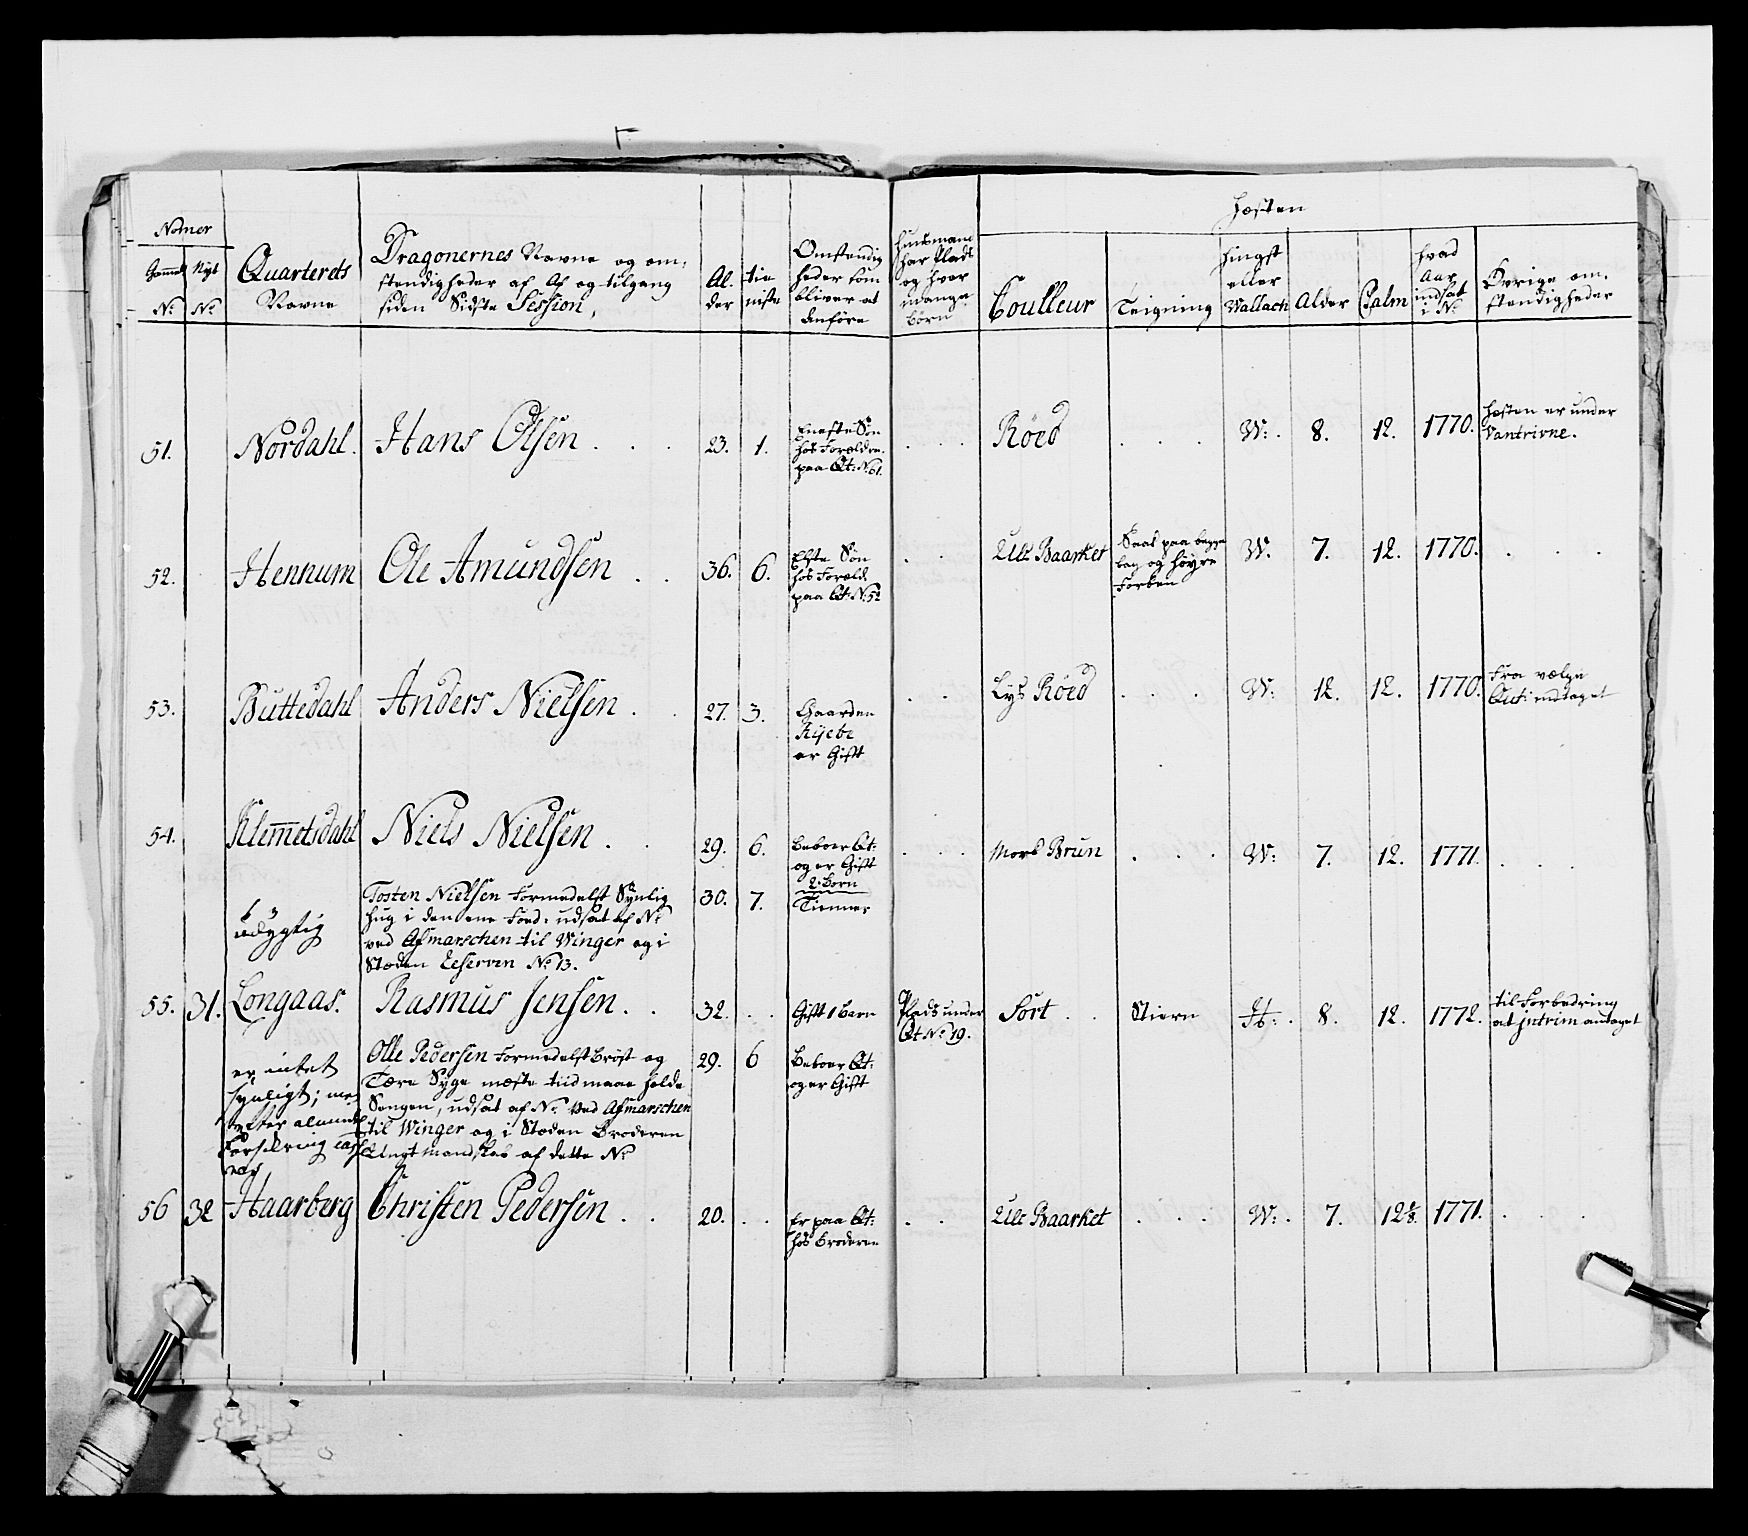 Nomer
Gammel Nyt
No No
Quarterets
Navne
Dragonernes Navne og om-
stendigheder af Af og tilgang
siden Sidste Session,
Al-
der
tie
niste
Omstendig
heder som
bliver at
Anføre
Huusmand
har Plads
og hvor
mange
Børn
Hæsten
Coulleur
Teigning
Hingst
eller
Wallach
Alder
Palm
hvad
Aar
indsat
i No
Øvrige om-
stendigheder
51. Nordahl. Hans Olsen . . . 23. 1.
Eneste Søn
hos Forældre.
paa Qt: No 51.
. . . Röed . . . W: 8. 12. 1770.
Hæsten er under
Vantrivne.
52. Hennum Ole Amundsen . . 36. 6.
Elste Søn
hos Foræld.
paa Qt: No 52
. . Ulf Baarket
paa begge
og höyre
Forben
W. 7. 12. 1770. . . .
53. Buttedahl Anders Nielsen . . 27. 3.
Gaarden
er Gift
. . Lys Röed . . . W: 12. 12. 1770.
Fra
Qut: indtaget
54. Klemetsdahl Niels Nielsen . . 29. 6.
Beboer Qt:
og er Gift
2: Børn
. . . Mork Brun . . . W: 7. 12. 1771. . . .
udygtig
Tosten Nielsen Formedelst Synlig
hug i den ene Foed: udsat af No
ved Afmarschen til Winger og i
Stæden Reserven No 13.
30. 7. Tienner
55. 31. Longaas. Rasmus Jensen. . 32. . . Gift 1 barn
Plads under
Qt No 19.
Sort . . Stiern H: . 8. 12. 1772.
til Forbedring
at Jntrim antaget
er intet
synligt;
efter
Forsikring
Olle Pedersen Formedelst Bröst og
Tære Syge mæste tiid maae holde
Sengen, udsat af No Ved Afmarschen
til Winger og i Stæden Broderen
Ungt Mandskab af dette No
29. 6
Beboer Qt:
og er Gift
56 32 Haarberg Christen Pedersen . . 20. . .
Er paa Qt:
hos Broderen
. . Ulf Baarket . . . W: . 7. 12 1771. . . .